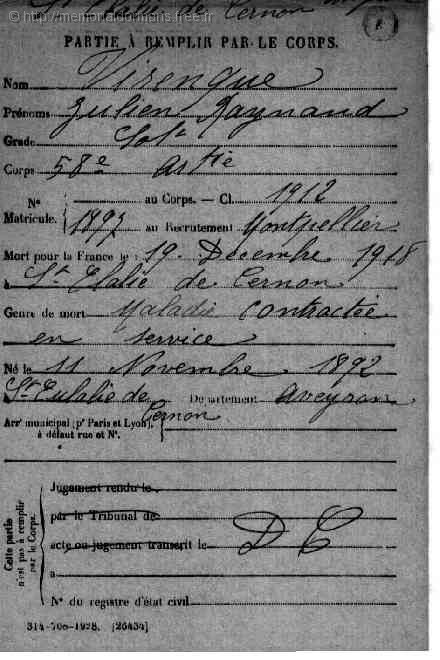 http://memorialdormans.free.fr
St Elalie de Cernon
PARTIE À REMPLIR PAR LE CORPS.
Nom Virenque
Prénoms Julien Raynaud
Grade Sol
Corps 58e artie
N° Matricule. au Corps. — Cl. 1912
1897 au Recrutement Montpellier
Mort pour la France le 19 Decembre 1918
à St Elalie de Cernon
Genre de mort Maladie contractée
en service
Né le 11 Novembre 1892
St Eulalie de Cernon Département Aveyron
Arr' municipal (p' Paris et Lyon),
à défaut rue et N°.
Cette partie n'est pas à remplir par le Corps.
Jugement rendu le
par le Tribunal de
acte ou jugement transcrit le D C
à
N° du registre d'état civil
314-708-1928. [26434]